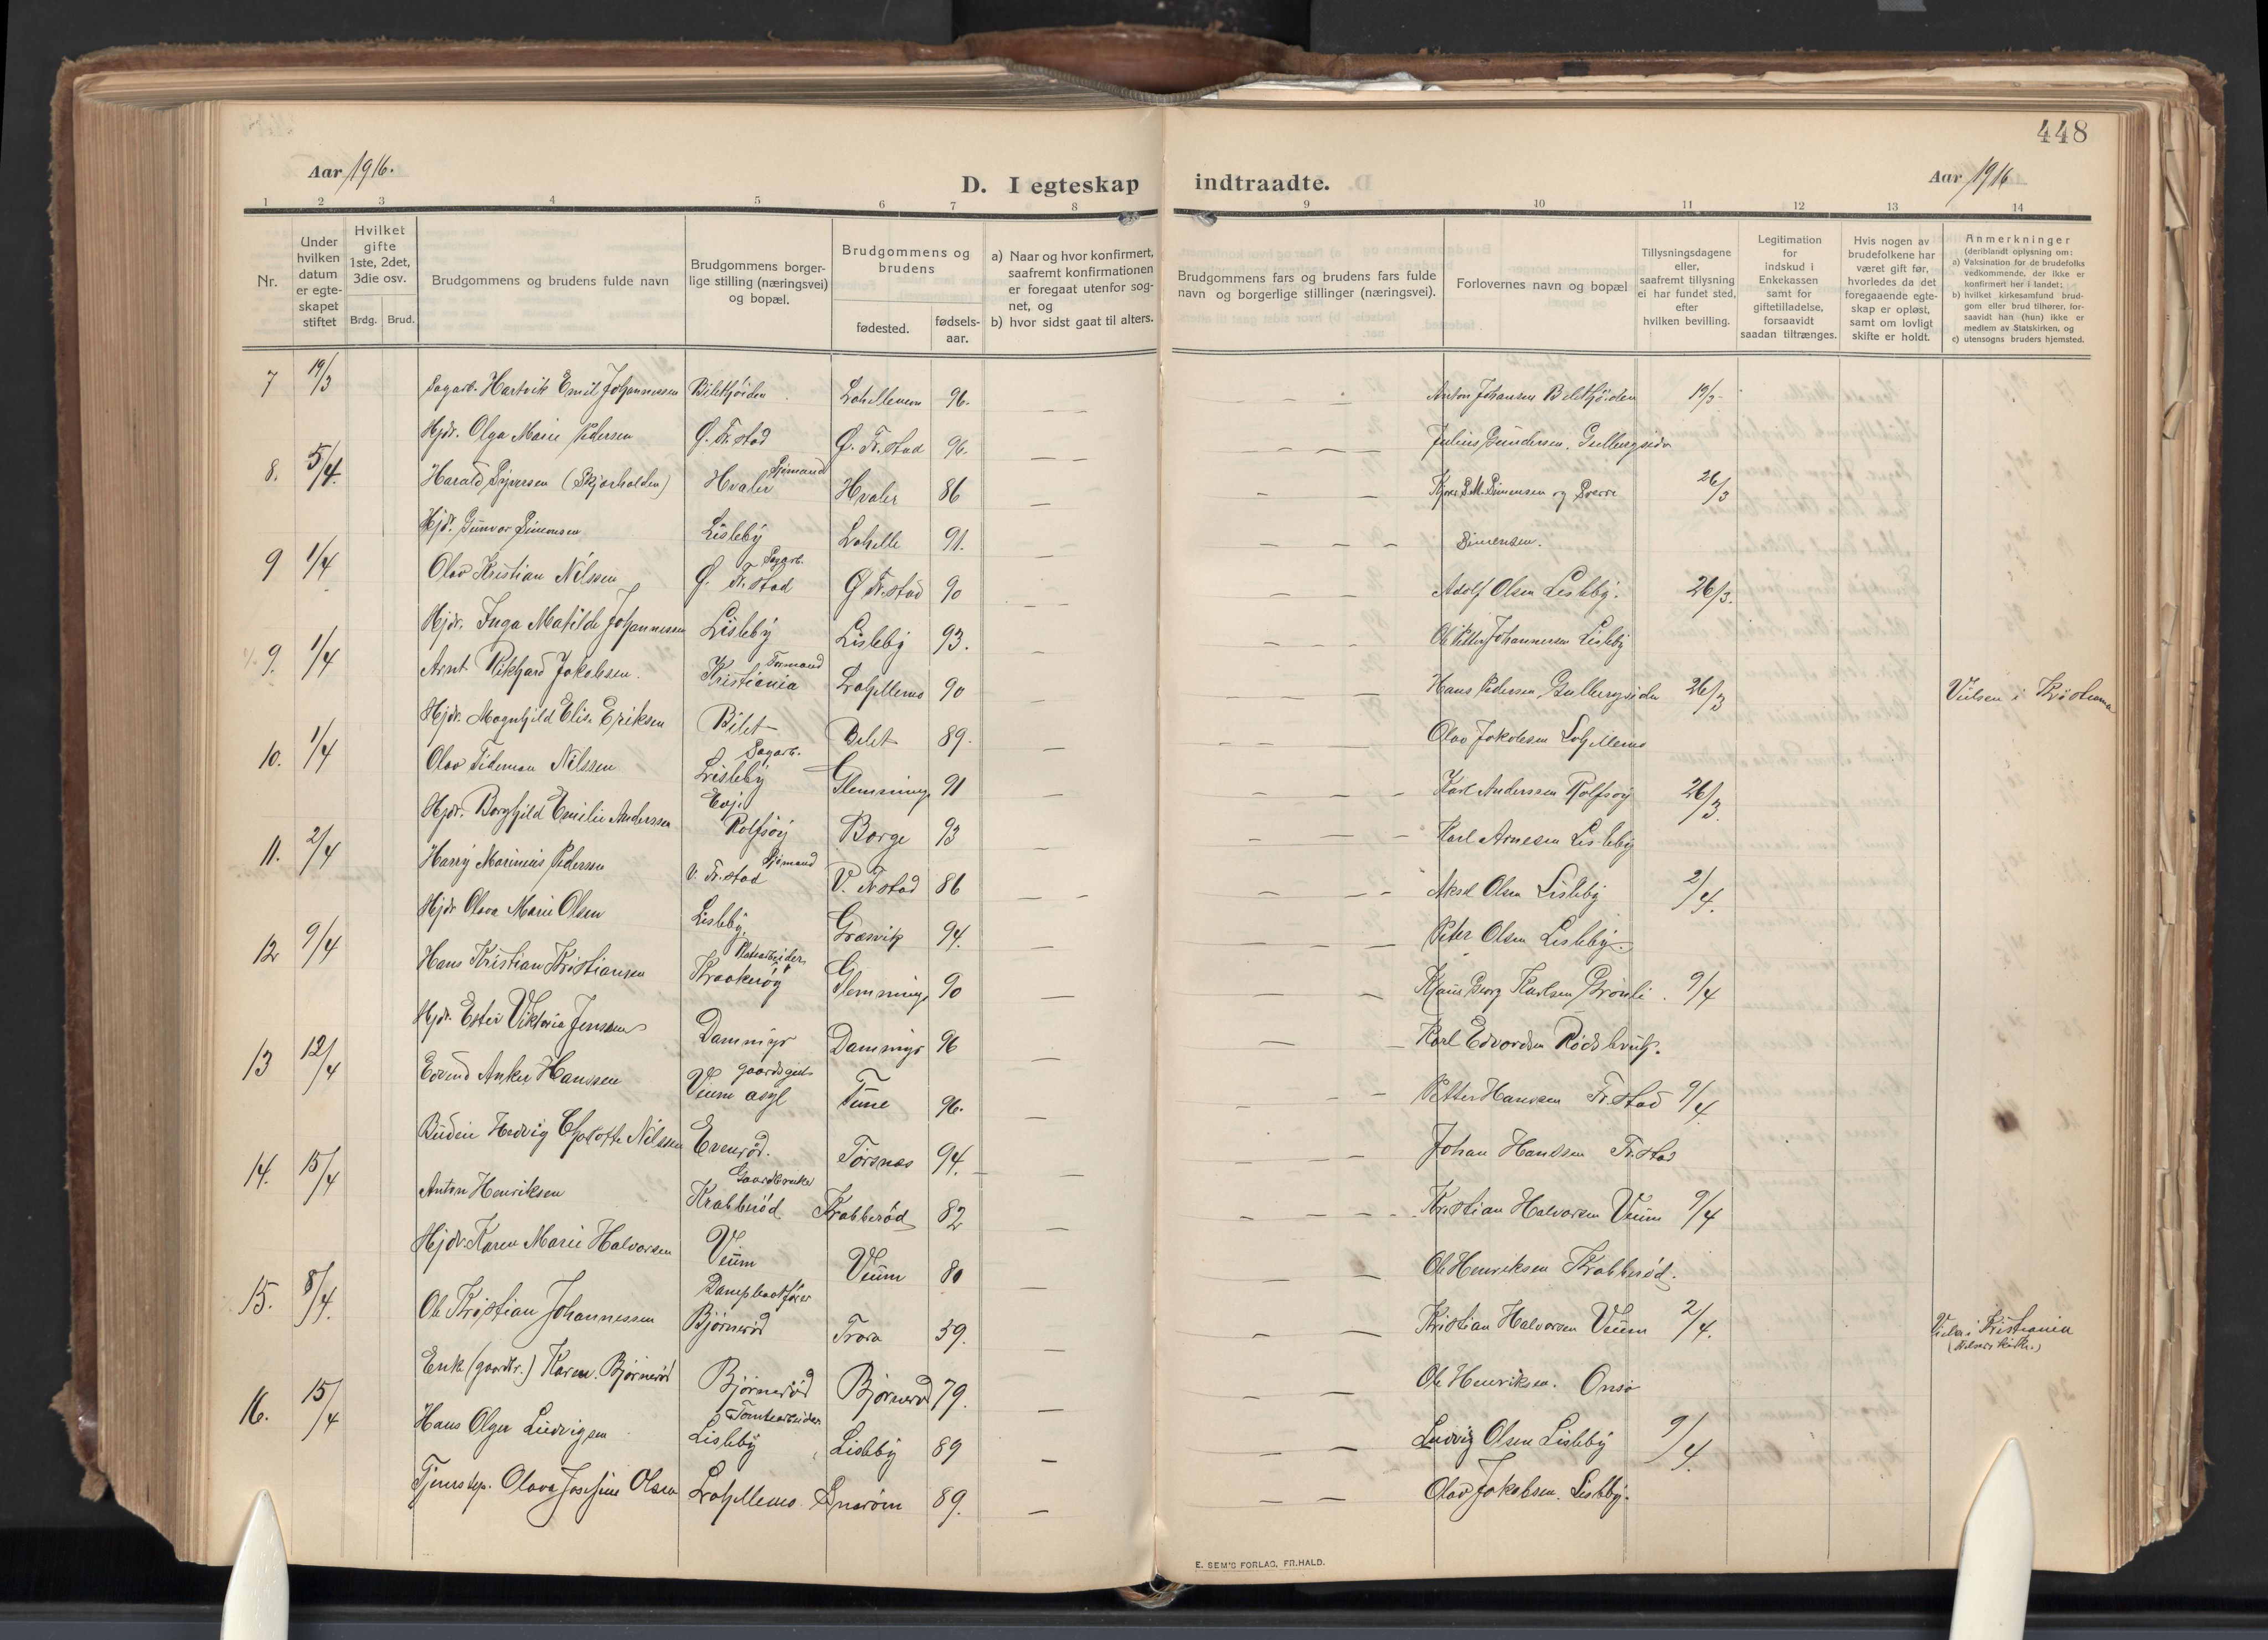 448
Aar 1916.
D. I egteskap indtraadte.
Aar 1916
1 2 3 4 5 6 7 8 9 10 11 12 13 14
Nr.
Under hvilken datum er egteskapet stiftet
Hvilket gifte 1ste, 2det, 3die osv.
Brdg. Brud.
Brudgommens og brudens fulde navn
Brudgommens borgerlige stilling (næringsvei) og bopæl.
Brudgommens og brudens
fødested.
fødselsaar.
a) Naar og hvor konfirmert, saafremt konfirmationen er foregaat utenfor sognet, og
b) hvor sidst gaat til alters.
Brudgommens fars og brudens fars fulde navn og borgerlige stillinger (næringsvei).
Forlovernes navn og bopæl
Tillysningsdagene eller, saafremt tillysning ei har fundet sted, efter hvilken bevilling.
Legitimation for indskud i Enkekassen samt for giftetilladelse, forsaavidt saadan tiltrænges.
Hvis nogen av brudefolkene har været gift før, hvorledes da det foregaaende egteskap er opløst, samt om lovligt skifte er holdt.
Anmerkninger
(deriblandt oplysning om:
a) Vaksination for de brudefolks vedkommende, der ikke er konfirmert her i landet;
b) hvilket kirkesamfund brudgom eller brud tilhører, forsaavidt han (hun) ikke er medlem av Statskirken, og
c) utensogns bruders hjemsted.
7 19/3 Sagarb. Hartvik Emil Johannessen Lahellemoen 96. — — Anton Johansen 19/3
Hjdr. Olga Marie Pedersen Ø. Fr.stad Ø. Fr.stad 96. — — Julius Gundersen. Gullbergsiden
8. 5/4 Harald Syversen (Skjærhalden) Sjømand Hvaler Hvaler 86 — S. M. Simensen og Sverre 26/3
Hjdr. Gunvor Simensen Lisleby Lahelle 91. — Simensen.
9 1/4 Olav Kristian Nilssen Sagarb. Ø. Fr.stad Ø Fr.stad 90 — — Adolf Olsen Lisleby. 26/3.
Hjdr. Inga Matilde Johannessen Lisleby Lisleby 93. — Ole Petter Johannessen Lisleby
9. 1/4 Arnt Rikhard Jakobsen. Kristiania Lahellemo 90 — Hans Pedersen, Gullbergsiden 26/3 Vielsen i
Hjdr. Magnhild Elise Eriksen Bilet Bilet 89. — Olav Jakobsen Lahellemo
10. 1/4 Olav Tideman Nilssen Sagarb. Lisleby Glemminge 91 — Karl Anderssen Rolfsøy 26/3.
Hjdr. Borghild Emilie Anderssen Evje Rolfsøy Borge 93 — Karl Arnesen Lisleby
11. 2/4 Harry Marinius Pedersen Sjømand V. Fr.stad V. Fr.stad 86 — — Aksel Olsen Lisleby 2/4.
Hjdr Olava Marie Olsen Lisleby. Græsvik 94. — Peter Olsen Lisleby.
12 9/4 Hans Kristian Kristiansen Kraakerøy Glemminge 90 — Georg Karlsen Grønli. 9/4
Hjdr. Ester Viktoria Jenssen Dammyr Dammyr 96 — Karl Edvardsen Rødsbrug.
13 12/4 Edvind Anker Hanssen gaardsgut Veum asyl Tune 96. — Petter Hanssen Fr.stad 9/4.
Budeie Hedvig Charlotte Nilssen Evenrød. Torsnæs 94. — — Johan Hanssen Fr.stad
14. 15/4 Anton Henriksen Gaardbruker Krabberød Krabberød 82 — Kristian Halvorsen Veum 9/4
Hjdr. Karen Marie Halvorsen Veum Veum 80 — Ole Henriksen Krabberød.
15. 8/4. Ole Kristian Johannessen Dampbaatfører Bjørnerød Trara 59. — Kristian Halvorsen Veum 2/4. Vielse i Kristiania
Enk (gaardbr.) Karen Bjørnerød Bjørnerød Bjørnerød 79. — Ole Henriksen. Onsø
16. 15/4 Hans Olger Ludvigsen Tomtearbeider Lisleby Lisleby 89 — Ludvig Olsen Lisleby 9/4.
Olava Josefine Olsen Lahellemo 89. — Olav Jakobsen. Lisleby.
E. SEM'S FORLAG, FR.HALD.